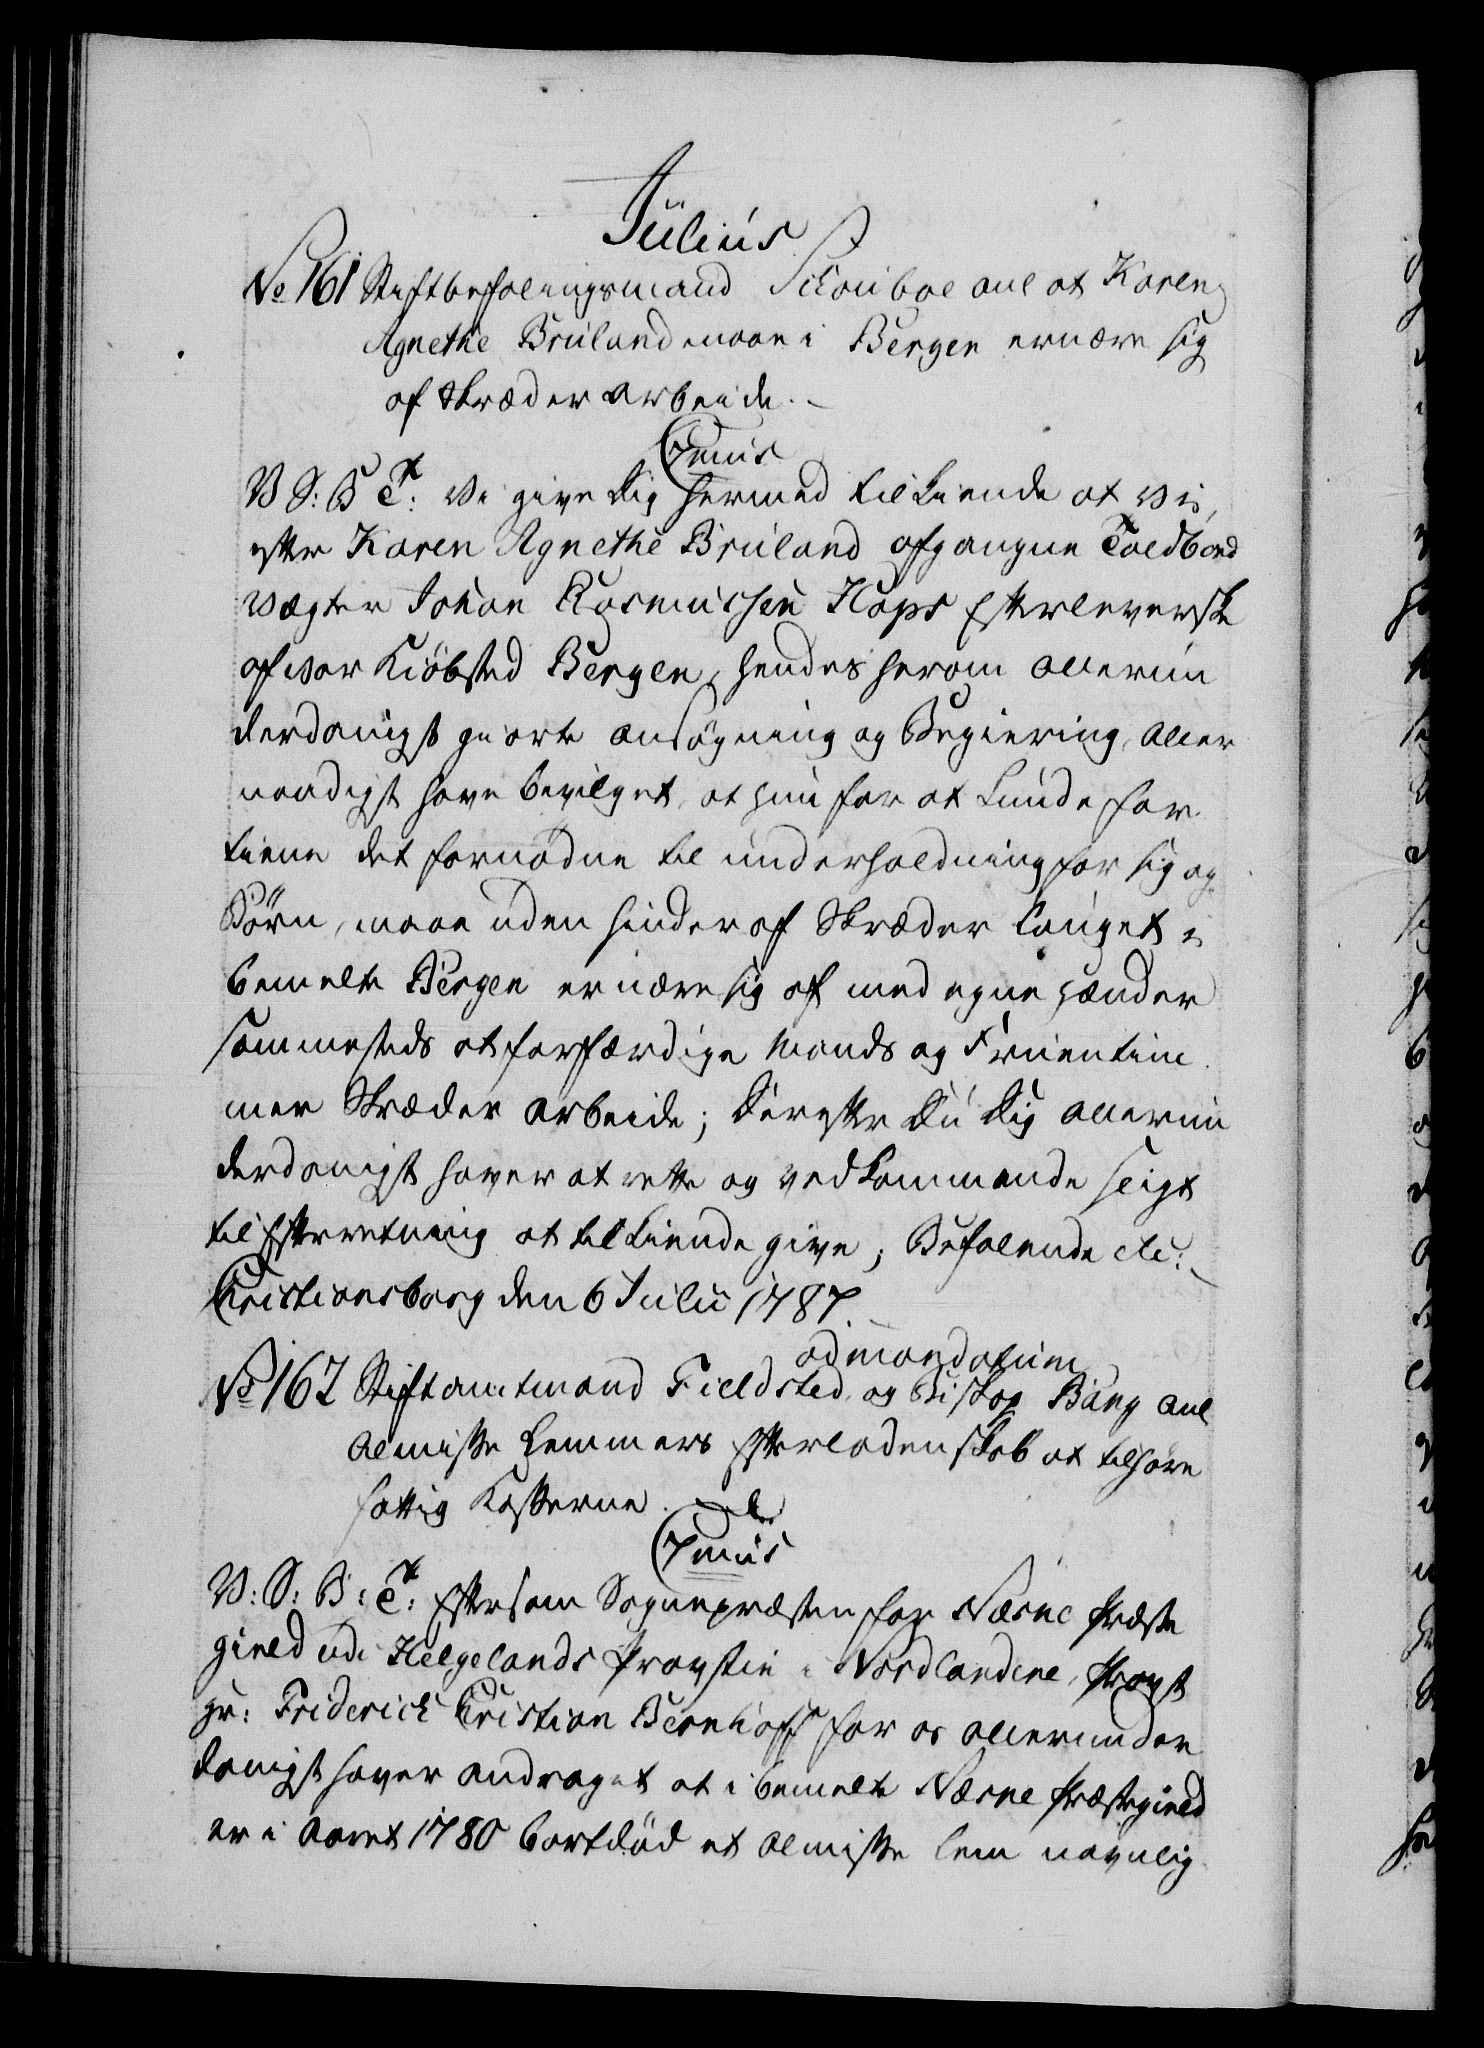 Julius
No 161 Stiftbefalingsmand Schouboe anl at Karen
Agnethe Bruland maae i Bergen ernære sig
af Skræder arbeide.
C7mus
V S: G T: Vi give dig hermed tilkiende at Vi,
efter Karen Agnethe Bruland afgangne Toldbod
vægter Johan Rasmussen Haps Efterleverske
af vor Kiöbsted Bergen, hendes herom allerun
derdanigst giorte ansøgning og Begiering, aller
naadigst have bevilget, at hun for at kunde for
tiene det fornødne til underholdning for sig og
Börn, maae uden hinder af Skræder Lauget i
bemelte Bergen ernære sig af med egne hænder
sammesteds at forfærdige Mands og Fruentim
mer Skræder arbeide; Derefter Du dig allerun
derdanigst haver at rette og vedkommende sligt
til Efterretning at tilkiende give; Befalende etc:
Cristiansborg den 6 Julii 1787.
ad mandatum
No 162 Stiftamtmand Fieldsted og Biskop Bang anl
Almisse Lemmers Efterladenskab at tilhøre
fattig Kasserne.
C7mus
V: S: G: T: Eftersom Sognepræsten for Næsne Præste
gield udi Helgelands Provstie i Nordlandene, Provst
Hr: Friderich Cristian Bernhoff for os allerunder
danigst haver andraget at i bemelte Næsne Præstegield
er i Aaret 1780 bortdöd et Almisse Lem navnlig